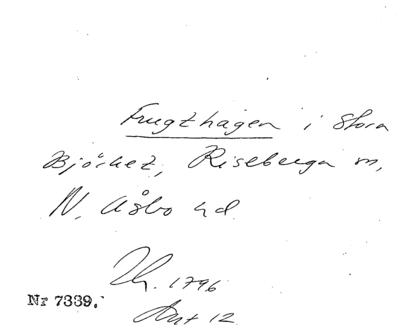 Frugthagen i Stora
Björket, Riseberga sn,
N. Åsbo hd.
Lh. 1796
Nr 7339.
Akt 12